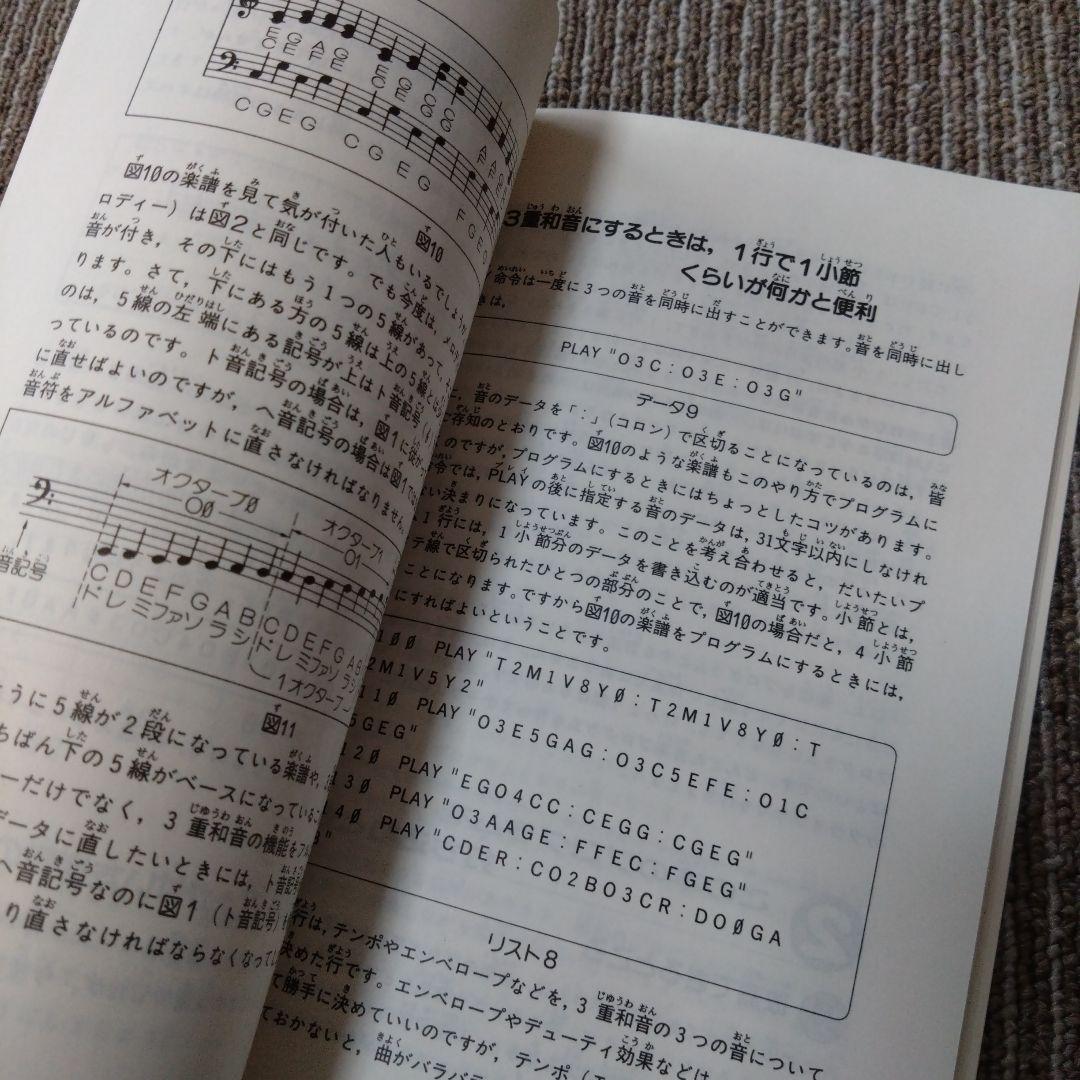 E G A G E G C C
C E F E C E G G
C G E G C G E G
図10
図10の楽譜を見て気が付いた人もいるでしょう
ロディー）は図2と同じです。でも今度は，メロデ
音が付き，その下にはもう1つの5線があって，
ります。さて，下にある方の5線は上の5線とは
のは，5線の左端にある記号が上はト音記号（
っているのです。ト音記号の場合は，図1に
に直せばよいのですが，ヘ音記号の場合は図1では
音符をアルファベットに直さなければなりません。
オクターブ0
O0
オクターブ1
O1
音記号
C D E F G A B C D E F G A B
ド レ ミ ファ ソ ラ シ ド レ ミ ファ ソ ラ シ
1オクターブ
図11
ように5線が2段になっている楽譜や，
ちばん下の5線がベースになっているこ
ーだけでなく，3重和音の機能をフル
データに直したいときには，ト音記
ヘ音記号なのに図1（ト音記号）
り直さなければならなくなって
3重和音にするときは，1行で1小節
くらいが何かと便利
命令は一度に3つの音を同時に出すことができます。音を同時に出し
きは，
PLAY "O3C:O3E:O3G"
データ9
，音のデータを「：」（コロン）で区切ることになっているのは，皆
存知のとおりです。図10のような楽譜もこのやり方でプログラムに
のですが，プログラムにするときにはちょっとしたコツがあります。
令では，PLAYの後に指定する音のデータは，31文字以内にしなけれ
い決まりになっています。このことを考え合わせると，だいたいプ
1行には，1小節分のデータを書き込むのが適当です。小節とは，
テ線で区切られたひとつの部分のことで，図10の場合だと，4小節
ことになります。ですから図10の楽譜をプログラムにするときには，
にすればよいということです。
100 PLAY "T2M1V8Y0:T2M1V8Y0:T
2M1V5Y2"
110 PLAY "O3E5GAG:O3C5EFE:O1C
5GEG"
120 PLAY "EGO4CC:CEGG:CGEG"
130 PLAY "O3AAGE:FFEC:FGEG"
140 PLAY "CDER:CO2BO3CR:DO0GA
"
リスト8
行は，テンポやエンベロープなどを，3重和音の3つの音について
決めた行です。エンベロープやデューティ効果などは
て勝手に決めていいのですが，テンポ（
ておかないと，曲がバラバラ